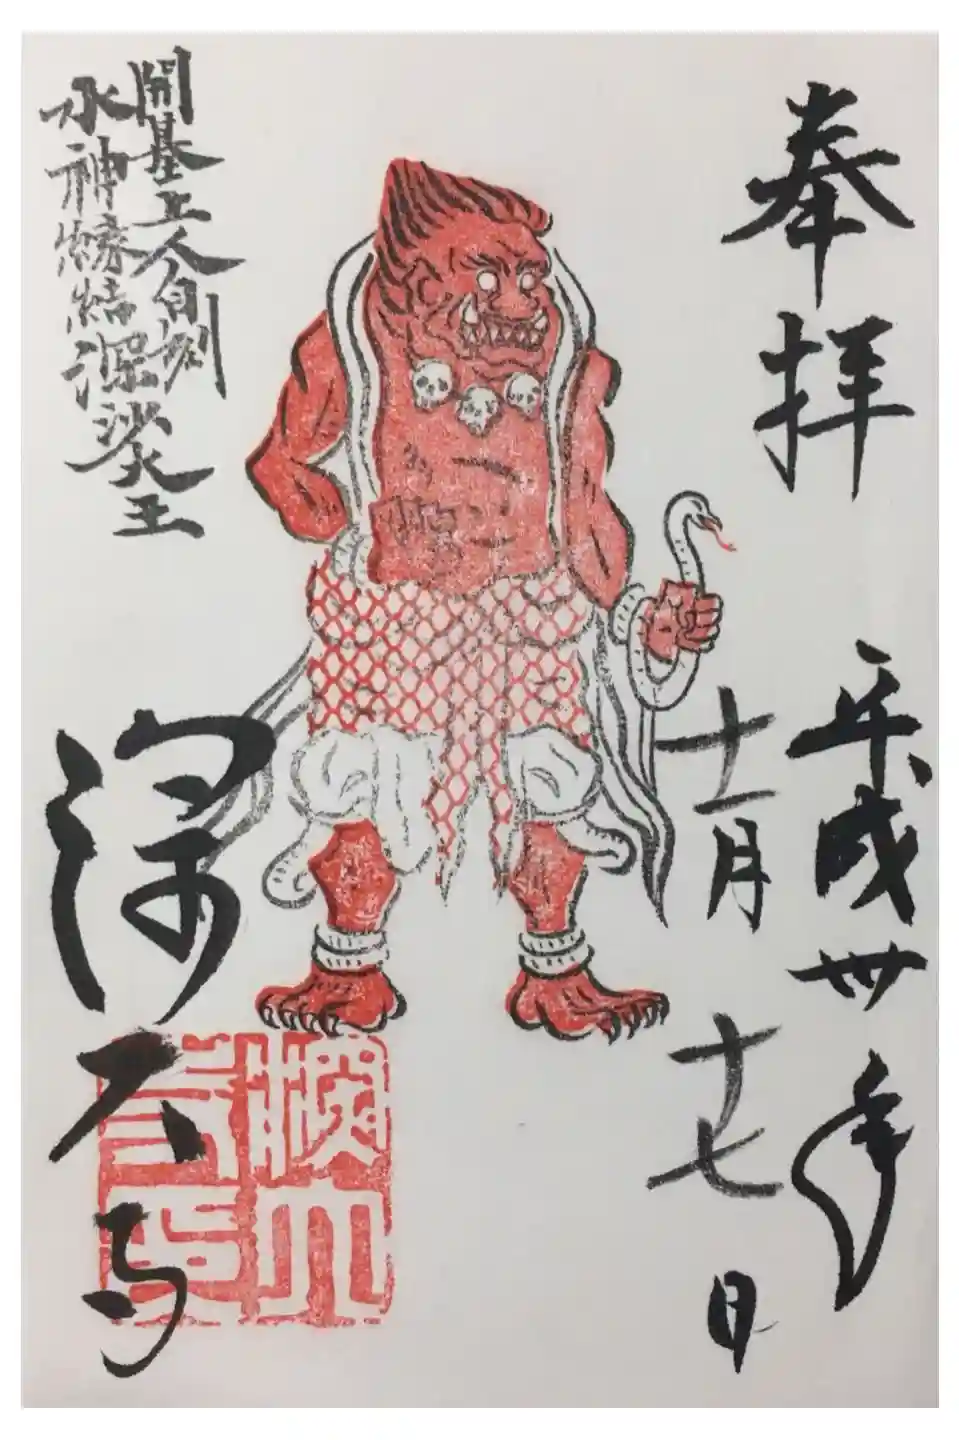 奉拝
平成卅年
十一月十七日
開基上人自刻
水神縁結深沙大王
深大寺